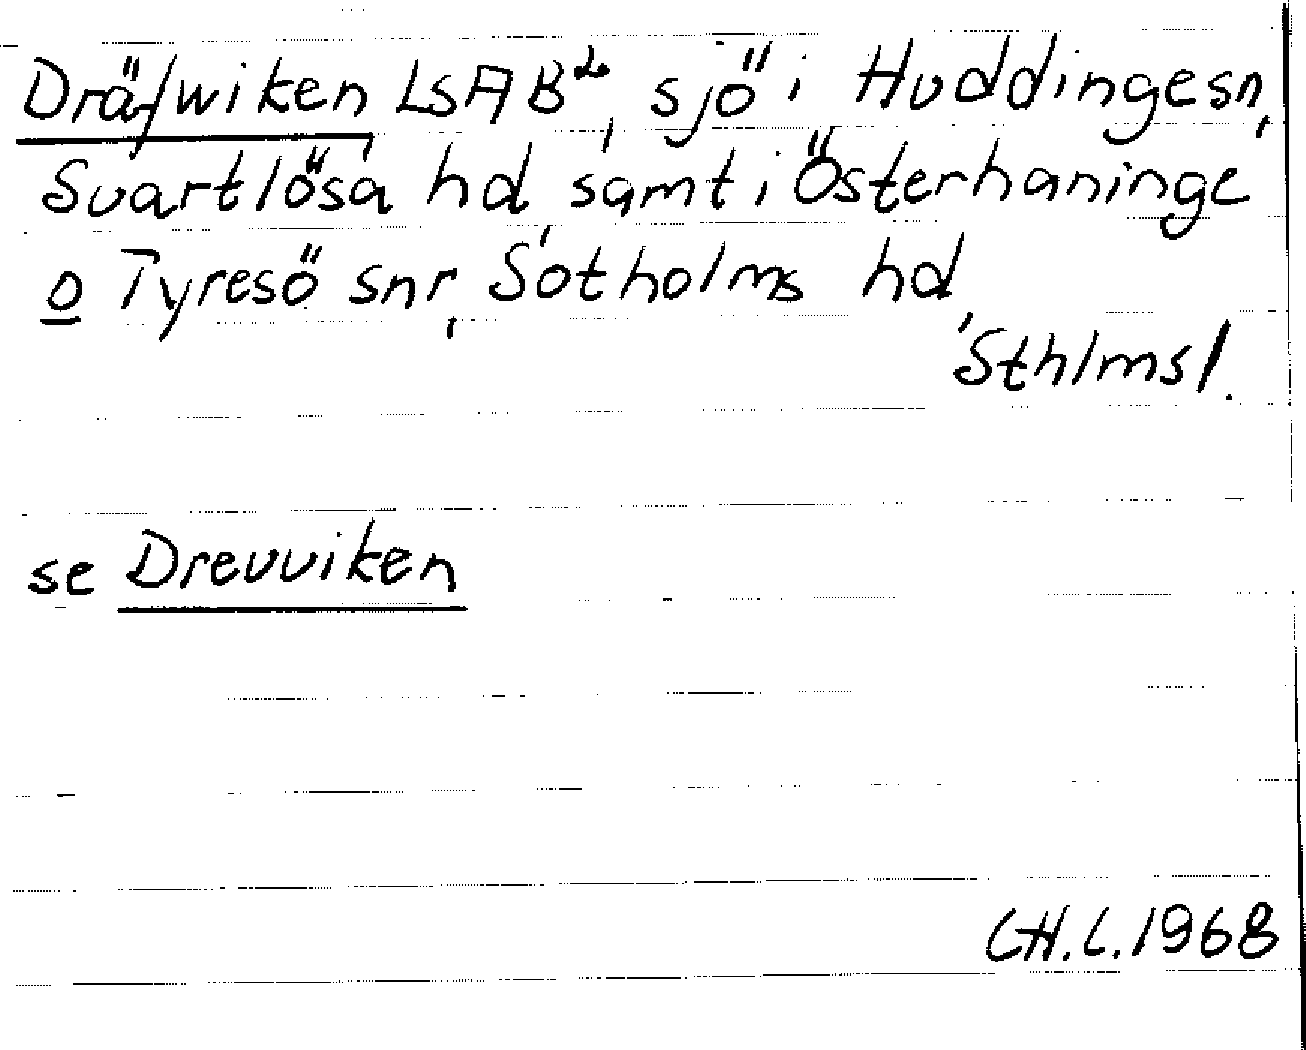 Dräfwiken LSAB², sjö i Huddinge sn,
Svartlösa hd samt i Österhaninge
o Tyresö snr, Sotholms hd,
Sthlms l.
se Drevviken
CH.L. 1968